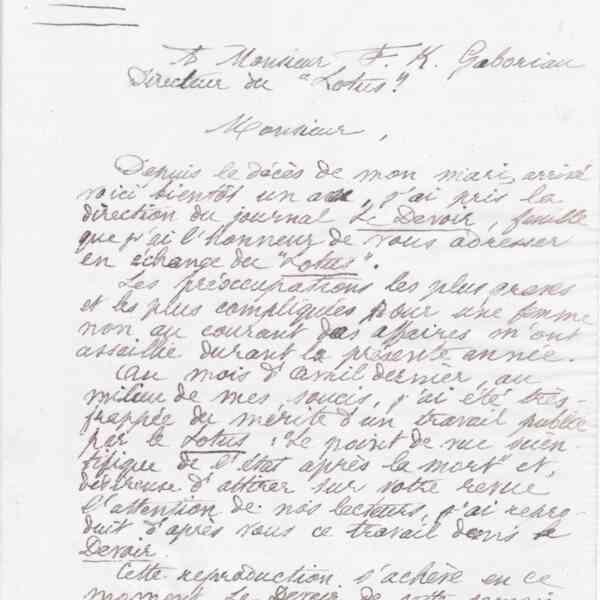 A Monsieur F. K. Gaboriau
Directeur du "Lotus".
Monsieur,
Depuis le décès de mon mari, arrivé
voici bientôt un an, j'ai pris la
direction du journal Le Devoir, feuille
que j'ai l'honneur de vous adresser
en échange du "Lotus".
Les préoccupations les plus graves
et les plus compliquées pour une femme
non au courant des affaires m'ont
assaillie durant la présente année.
Au mois d'avril dernier, au
milieu de mes soucis, j'ai été très-
frappée du mérite d'un travail publié
par le Lotus : "Le point de vue scien-
tifique de l'état après la mort" et,
désireuse d'attirer sur votre revue
l'attention de nos lecteurs, j'ai repro-
duit d'après vous ce travail dans le
Devoir.
Cette reproduction s'achève en ce
moment. Le Devoir de cette semaine